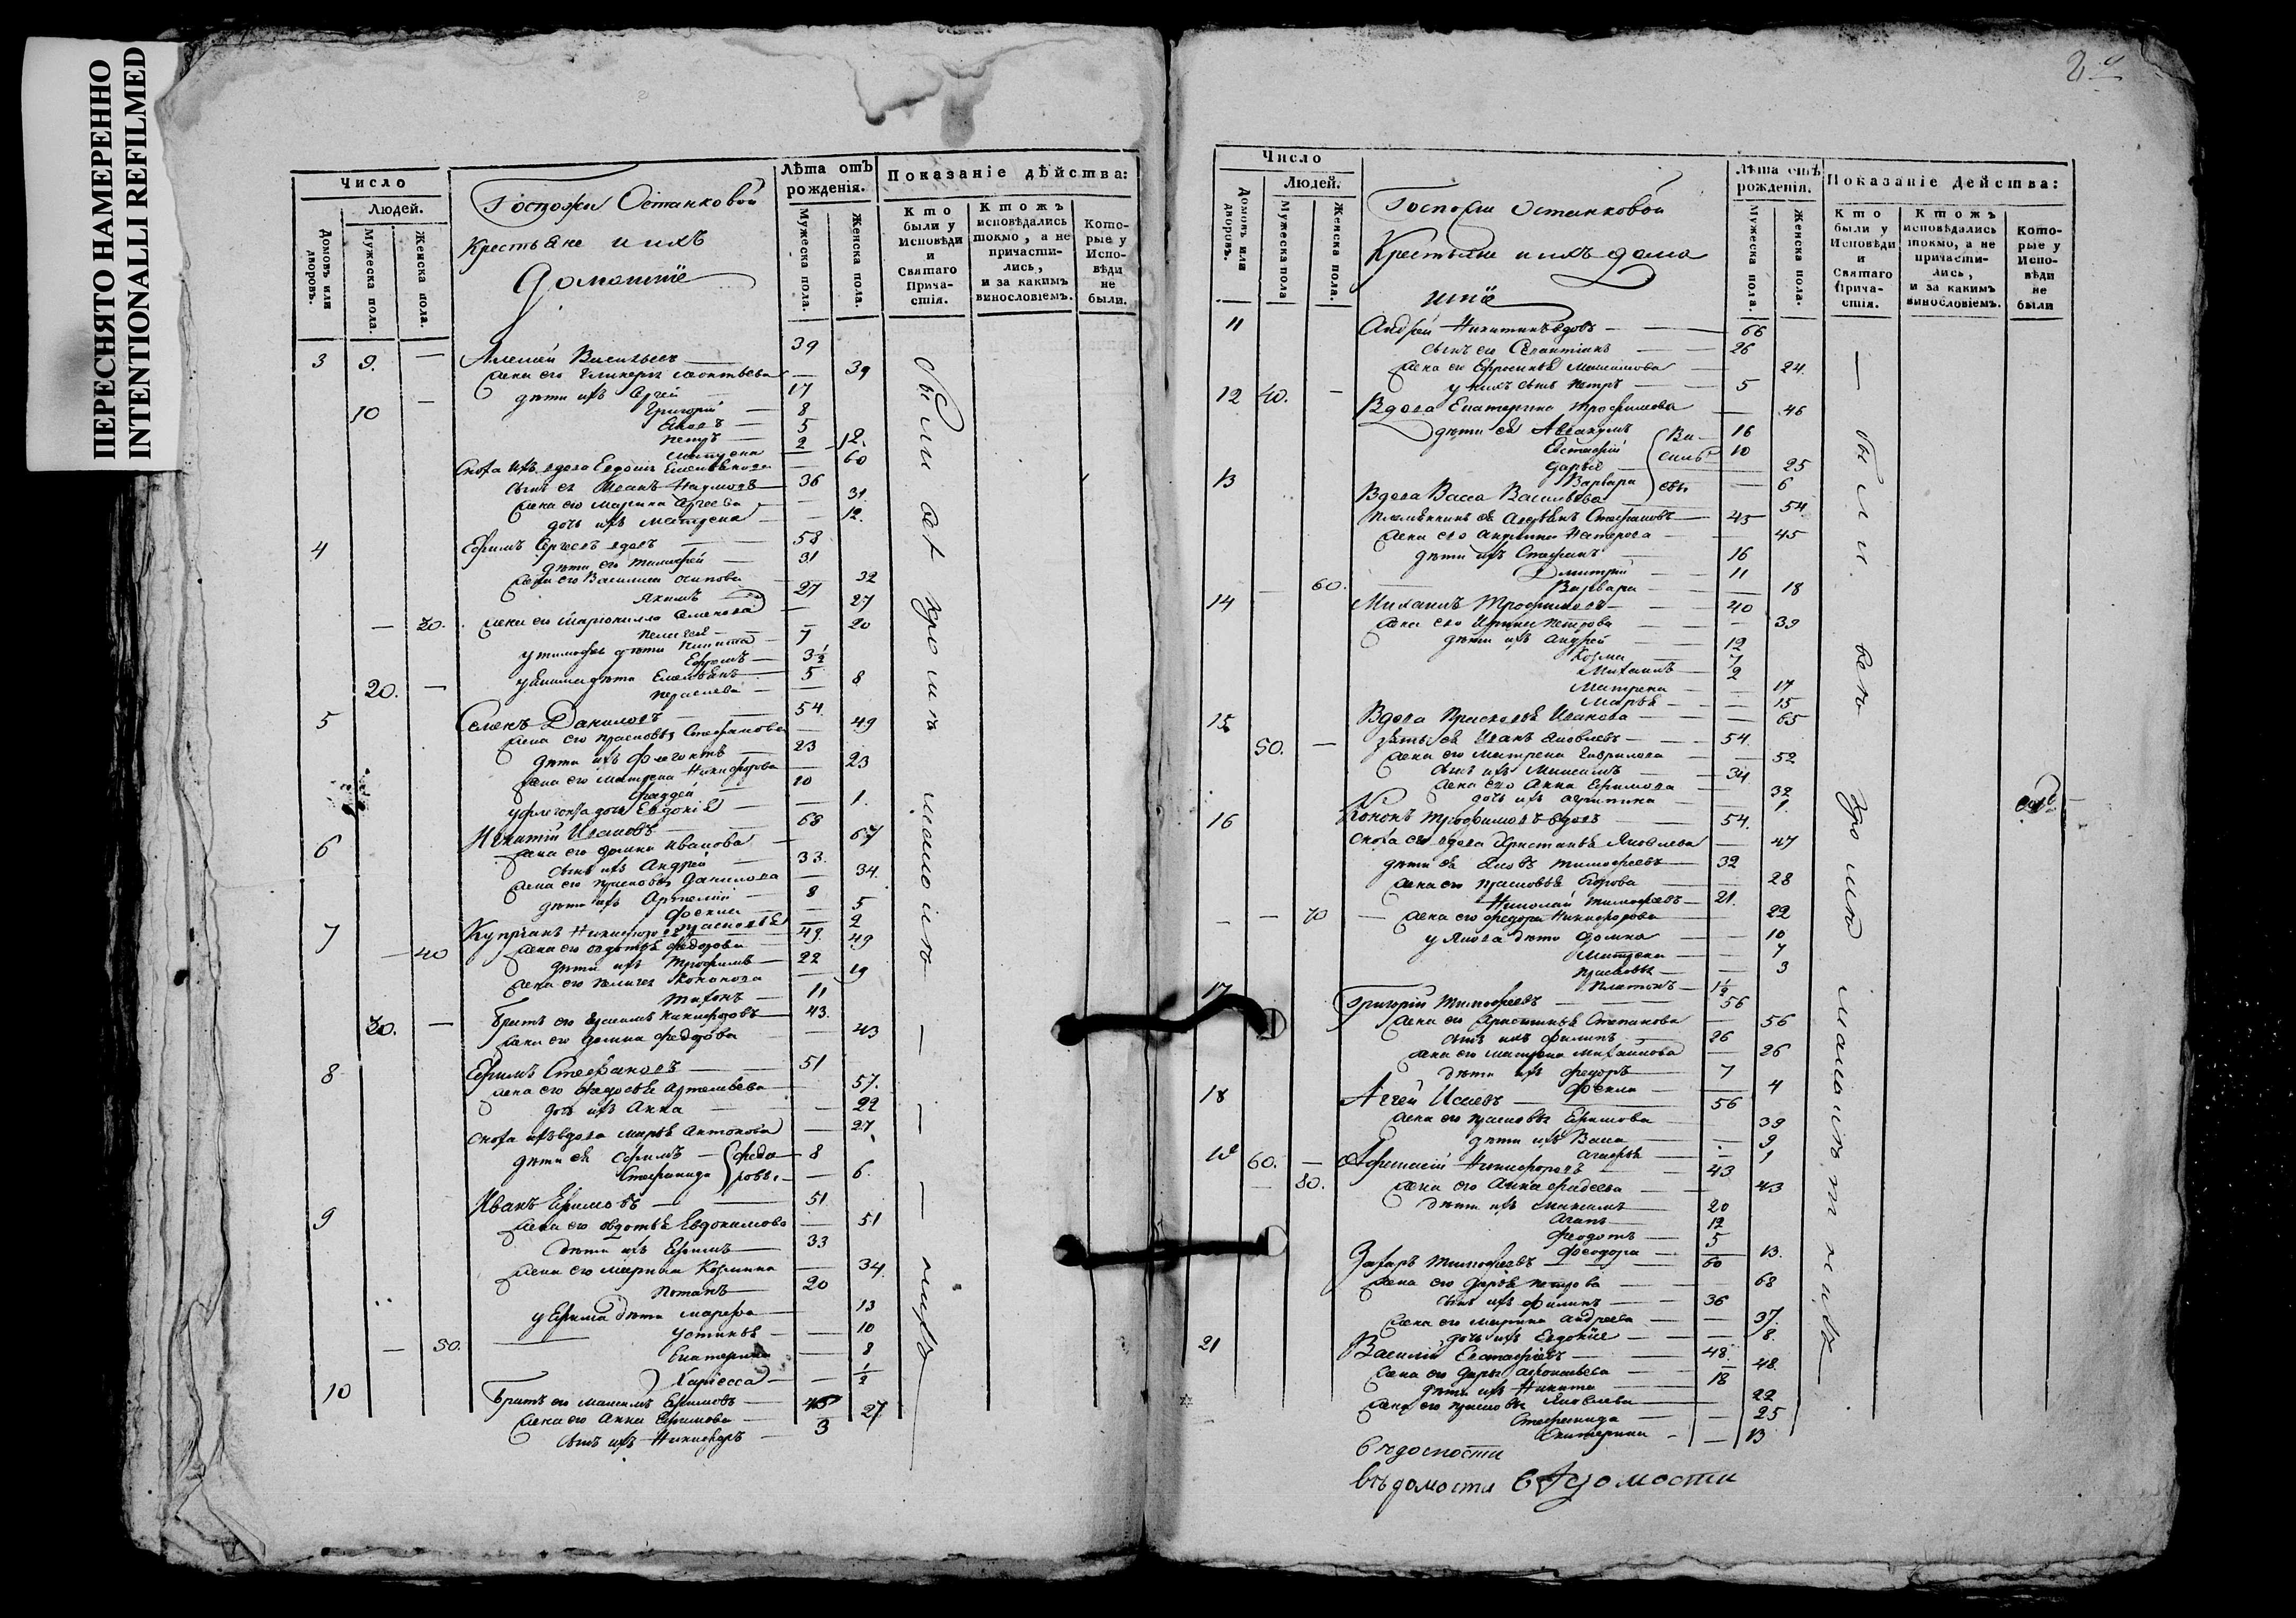 ПЕРЕСНЯТО НАМЕРЕННО
INTENTIONALLI REFILMED
Число
Людей.
Домовъ или дворовъ.
Мужеска пола.
Женска пола.
Госпожи Останковой
Крестьяне и ихъ
Домашніе
Лѣта отъ рожденія.
Мужеска пола.
Женска пола.
Показаніе дѣйства:
Кто были у Исповѣди и Святаго Прича-стія.
Ктожъ исповѣдались токмо, а не причасти-лись, и за какимъ винословіемъ.
Кото-рые у Испо-вѣди не были.
3 9. — Алексей Васильевъ — 39
жена его Гликерія Леонтьева — 39
дѣти ихъ Сергей 17
10 — Григорій — 8
Яковъ — 5
Петръ — 2
Матрена 12.
Сноха ихъ вдова Емельянова — 60
сынъ ея Иванъ Наумовъ — 36
жена его Марина Сергеева — 31.
дочь ихъ Матрена — 12.
4 Ефимъ Сергеевъ вдовъ 58
дѣти его Тимофей — 31
жена его Василиса Осипова 32
Якимъ 27
жена его Семенова — 27
— 30. Пелагея — 20
у Тимофея дѣти Никита — 7
Ефремъ — 3½
20. — у Якима дѣти Емельянъ — 5
— 8
5 Семенъ Даниловъ — 54.
жена его Прасковья Стефанова — 49
дѣти ихъ 23
жена его Матрена Никифорова — 23
Фаддей 10
дочь Евдокія — 1.
6 Игнатій Ивановъ — 68
жена его Домна Иванова — 67
сынъ ихъ Андрей — 33.
жена его Прасковья Данилова — 34.
дѣти ихъ Артемій — 8
Фекла 5
Прасковья — 2
7 Купріанъ Никифоровъ 49.
— 40 жена его Авдотья Федорова — 49
дѣти ихъ Трофимъ — 22
жена его Пелагея Кононова — 19
Тихонъ — 11
30. — Братъ его Никифоровъ — 43.
жена его Домна Федорова — 43
8 Ефимъ Стефановъ — 51
жена его Федосья Артемьева — 57.
дочь ихъ Анна — 22
Сноха ихъ вдова Марья Антонова — 27
дѣти ея Ефимъ — Федо- 8
Стефанида ровы — 6.
9 Иванъ Ефимовъ — 51
жена его Авдотья Евдокимова — 51
дѣти ихъ Ефимъ — 33
жена его Марина Козмина — 34
Потапъ — 20
у Ефима дѣти Марфа — 13
Устинья — 10
— 50. Екатерина — 8
— ½
10 Братъ его Максимъ Ефимовъ —
жена его Анна Ефимова — 27
сынъ ихъ Никифоръ — 3
были въ кромѣ малолѣт — — — нихъ
Число
Людей.
Домовъ или дворовъ.
Мужеска пола
Женска пола.
Госпожи Останковой
Крестьяне и ихъ дома
шніе
Лѣта отъ рожденія.
Мужеска пола.
Женска пола.
Показаніе дейсmва:
Кто были у Исповѣди и Святаго Прича-стія.
Ктожъ исповѣдались токмо, а не причасти-лись, и за какимъ винословіемъ.
Кото-рые у Испо-вѣди не были
11 Андрей Никитинъ вдовъ — 66
сынъ его 26
жена его Ефросинья Максимова — 24.
у нихъ сынъ Петръ — 5
12 40. — Вдова Екатерина Трофимова — 46
дѣти ея Аввакумъ Ва- 16
Евстафій силь- 10
Дарья — 25
Варвара евы — 6
13 Вдова Васса Васильева — 54
племянникъ ея Стефановъ — 45
жена его Акулина Нестерова — 45
дѣти ихъ Стефанъ — 16
Дмитрій — 11
— 60. Варвара — 18
14 Михаилъ Трофимовъ — 40
жена его Ирина Петрова — 39
дѣти ихъ Андрей — 12
Козма — 7
Михаилъ — 2
Матрена — 17
Марья — 15
15 Вдова Прасковья Иванова — 65
50. — зять ея Иванъ Яковлевъ — 54.
жена его Матрена Гаврилова — 52
сынъ ихъ Максимъ — 34
жена его Анна Ефимова — 32
дочь ихъ — 1.
16 Кононъ Трофимовъ вдовъ — 54.
Сноха его вдова Христинья Яковлева — 47
дѣти ея Яковъ Тимофеевъ — 32
жена его Прасковья Егорова — 28
Николай Тимофеевъ — 21.
— — 70 — жена его Федора Никифорова — 22
у Якова дѣти Домна — 10
Матрена — 7
Прасковья — 3
Платонъ — 1½
17 Григорій Тимофеевъ — 56
жена его Христинья Степанова — 56
сынъ ихъ Филипъ — 26
жена его Матрена Михайлова — 26
дѣти ихъ Федоръ — 7
Фекла — 4
18 Аггей Исаевъ — 56
жена его Прасковья Ефимова — 39
дѣти ихъ Васса — 9
Агафья — 1
19 60. — Афанасій Никифоровъ — 43
— 80. жена его Анна Фадеева — 43
дѣти ихъ Максимъ — 20
Агапъ — 12
Федотъ — 5
Феодора — 13.
Захаръ Тимофеевъ — 60
жена его Дарья Петрова — 68
сынъ ихъ Филипъ — 36
жена его Марина Андреева — 37.
дочь ихъ Евдокія — 8.
21 Василій Евстафіевъ — 48
жена его Дарья Афонасьева — 48
дѣти ихъ Никита 18
жена его Прасковья Яковлева — 22
Стефанида — 25
Екатерина — 13
— были всѣ кромѣ малолѣтнихъ
вѣдомости
вѣдомости вѣдомости